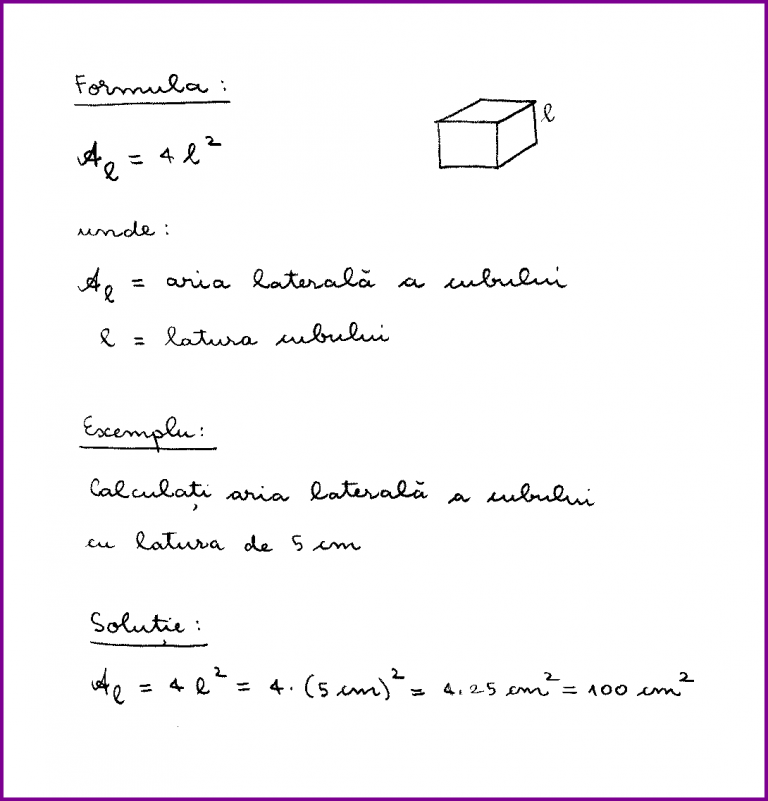 Formula:
l
Aₗ = 4 l²
unde:
Aₗ = aria laterală a cubului
l = latura cubului
Exemplu:
Calculați aria laterală a cubului
cu latura de 5 cm
Soluție:
Aₗ = 4 l² = 4 · (5 cm)² = 4 . 25 cm² = 100 cm²